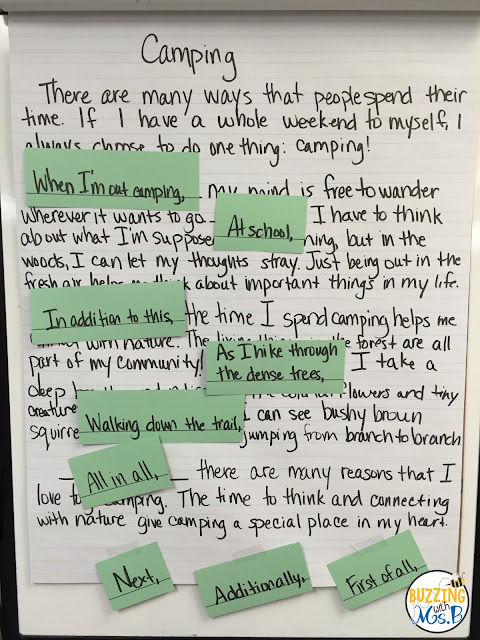 Camping
There are many ways that people spend their
time. If I have a whole weekend to myself, I
always choose to do one thing: camping!
When I'm out camping, my mind is free to wander
wherever it wants to go. At school, I have to think
about what I'm suppose ning, but in the
woods, I can let my thoughts stray. Just being out in the
fresh air helps me think about important things in my life.
In addition to this, the time I spend camping helps me
with nature. The living things in the forest are all
part of my community! As I hike through
the dense trees, I take a
deep flowers and tiny
creatures
Walking down the trail, can see bushy brown
squirre jumping from branch to branch
All in all, there are many reasons that I
love to go camping. The time to think and connecting
with nature give camping a special place in my heart.
Next,
Additionally,
First of all,
BUZZING
with
Ms. B